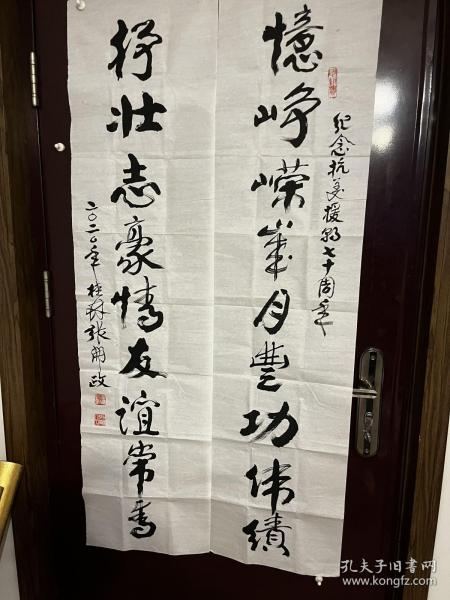 憶峥嶸歲月豐功伟績
纪念抗美援朝七十周年
抒壯志豪情友誼常青
二〇二〇年桂林张開政
孔夫子旧书网
www.kongfz.com